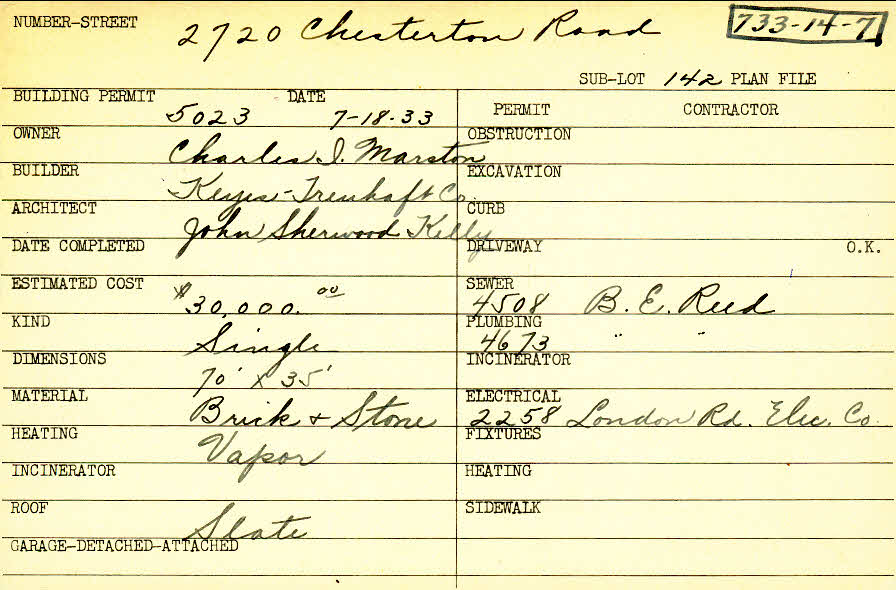 NUMBER-STREET 2720 Chesterton Road 733-14-7
SUB-LOT 142 PLAN FILE
BUILDING PERMIT DATE
5023 7-18-33
PERMIT CONTRACTOR
OWNER
Charles I. Marston
OBSTRUCTION
BUILDER
Keyes-Treuhaft Co.
EXCAVATION
ARCHITECT
John Sherwood Kelly
CURB
DATE COMPLETED
DRIVEWAY O.K.
ESTIMATED COST
$30,000.00
SEWER
4508 B. E. Reed
KIND
Single
PLUMBING
4673 " "
DIMENSIONS
70' x 35'
INCINERATOR
MATERIAL
Brick & Stone
ELECTRICAL
2258 London Rd. Elec. Co.
HEATING
Vapor
FIXTURES
INCINERATOR
HEATING
ROOF
Slate
SIDEWALK
GARAGE-DETACHED-ATTACHED